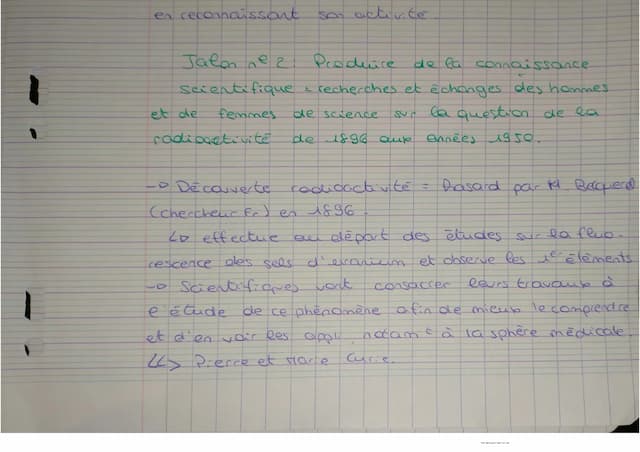 en reconnaissant son activité
Jalon n° 2 : Produire de la connaissance
scientifique : recherches et échanges des hommes
et de femmes de science sur la question de la
radioactivité de 1896 aux années 1950.
→ Découverte radioactivité = Hasard par H Becquerel
(chercheur Fr) en 1896.
↳ effectue au départ des études sur la fluo-
rescence des sels d'uranium et observe les 1e éléments
→ Scientifiques vont consacrer leurs travaux à
l'étude de ce phénomène afin de mieux le comprendre
et d'en voir les appli, notamt à la sphère médicale.
↳> Pierre et Marie Curie.